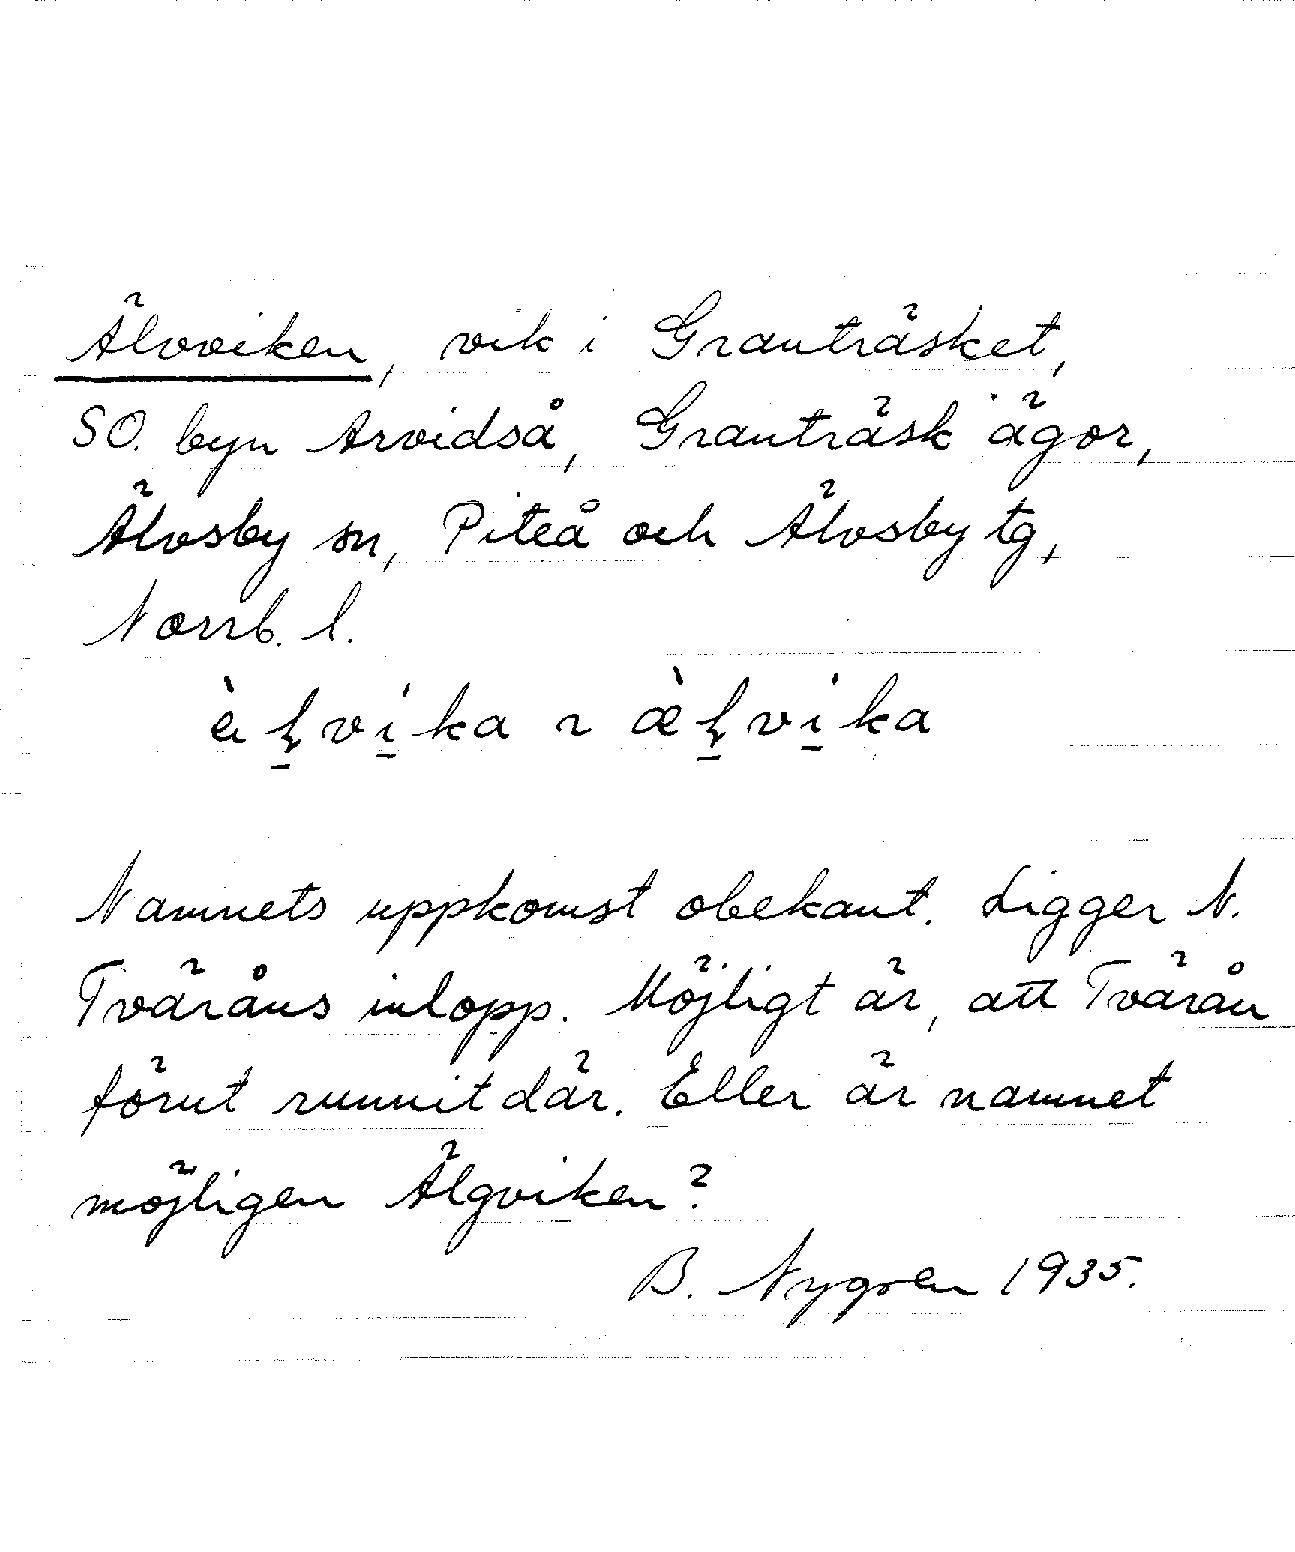 Älvviken, vik i Granträsket,
SO. byn Arvidså, Granträsk ägor,
Älvsby sn, Piteå och Älvsby tg,
Norrb. l.
Namnets uppkomst obekant. Ligger N.
Tväråns inlopp. Möjligt är, att Tvärån
förut runnit där. Eller är namnet
möjligen Älgviken?
B. Nygren 1935.